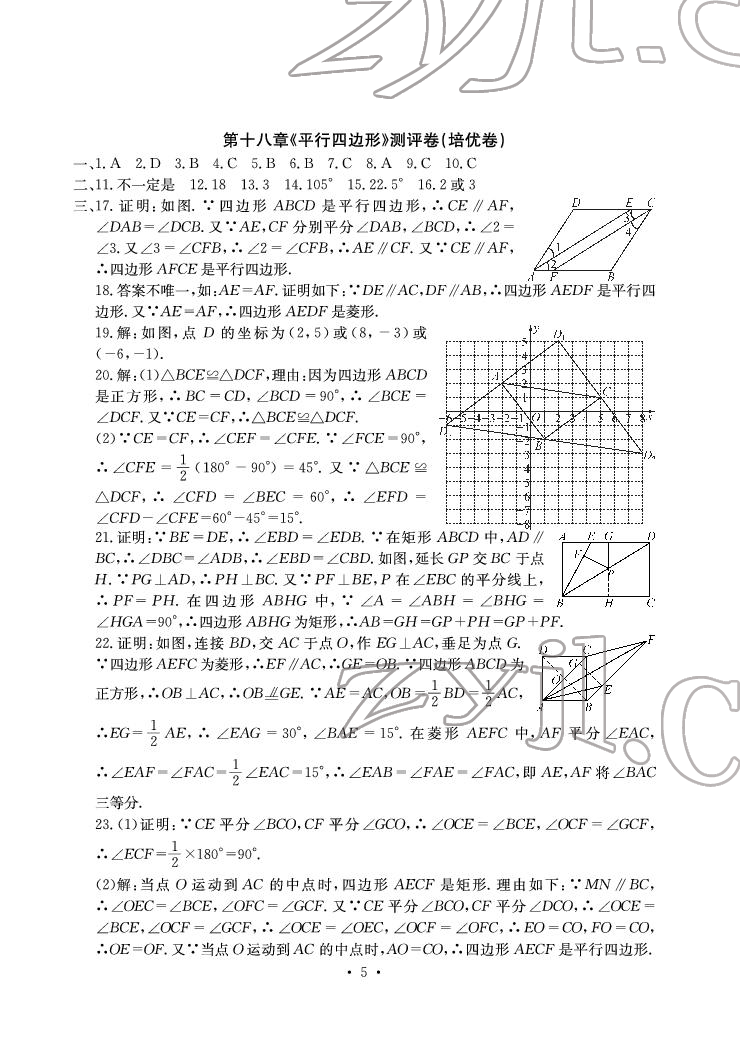 zyjl.c
第十八章《平行四边形》测评卷(培优卷)
一、1. A 2. D 3. B 4. C 5. B 6. B 7. C 8. A 9. C 10. C
二、11. 不一定是 12. 18 13. 3 14. 105° 15. 22.5° 16. 2或3
三、17. 证明:如图. ∵四边形 ABCD 是平行四边形,∴CE∥AF,
∠DAB=∠DCB. 又∵AE,CF 分别平分∠DAB,∠BCD,∴∠2=
∠3. 又∠3=∠CFB,∴∠2=∠CFB,∴AE∥CF. 又∵CE∥AF,
∴四边形 AFCE 是平行四边形.
D E C
3
4
1
2
A F B
18. 答案不唯一,如:AE=AF. 证明如下:∵DE∥AC,DF∥AB,∴四边形 AEDF 是平行四
边形. 又∵AE=AF,∴四边形 AEDF 是菱形.
19. 解:如图,点 D 的坐标为(2,5)或(8,-3)或
(-6,-1).
20. 解:(1)△BCE≌△DCF,理由:因为四边形 ABCD
是正方形,∴BC=CD,∠BCD=90°,∴∠BCE=
∠DCF. 又∵CE=CF,∴△BCE≌△DCF.
(2)∵CE=CF,∴∠CEF=∠CFE. ∵∠FCE=90°,
∴∠CFE=1/2(180°-90°)=45°. 又∵△BCE≌
△DCF,∴∠CFD=∠BEC=60°,∴∠EFD=
∠CFD-∠CFE=60°-45°=15°.
21. 证明:∵BE=DE,∴∠EBD=∠EDB. ∵在矩形 ABCD 中,AD∥
BC,∴∠DBC=∠ADB,∴∠EBD=∠CBD. 如图,延长 GP 交 BC 于点
H. ∵PG⊥AD,∴PH⊥BC. 又∵PF⊥BE,P 在∠EBC 的平分线上,
∴PF=PH. 在四边形 ABHG 中,∵∠A=∠ABH=∠BHG=
∠HGA=90°,∴四边形 ABHG 为矩形,∴AB=GH=GP+PH=GP+PF.
A E G D
F
P
B H C
22. 证明:如图,连接 BD,交 AC 于点 O,作 EG⊥AC,垂足为点 G.
∵四边形 AEFC 为菱形,∴EF∥AC,∴GE=OB. ∵四边形 ABCD 为
正方形,∴OB⊥AC,∴OB⊥∥GE. ∵AE=AC,OB=1/2BD=1/2AC,
∴EG=1/2AE,∴∠EAG=30°,∠BAE=15°. 在菱形 AEFC 中,AF 平分∠EAC,
∴∠EAF=∠FAC=1/2∠EAC=15°,∴∠EAB=∠FAE=∠FAC,即 AE,AF 将∠BAC
三等分.
F
D C
G
O
E
A B
23. (1)证明:∵CE 平分∠BCO,CF 平分∠GCO,∴∠OCE=∠BCE,∠OCF=∠GCF,
∴∠ECF=1/2×180°=90°.
(2)解:当点 O 运动到 AC 的中点时,四边形 AECF 是矩形. 理由如下:∵MN∥BC,
∴∠OEC=∠BCE,∠OFC=∠GCF. 又∵CE 平分∠BCO,CF 平分∠DCO,∴∠OCE=
∠BCE,∠OCF=∠GCF,∴∠OCE=∠OEC,∠OCF=∠OFC,∴EO=CO,FO=CO,
∴OE=OF. 又∵当点 O 运动到 AC 的中点时,AO=CO,∴四边形 AECF 是平行四边形.
zyjl.c
• 5 •